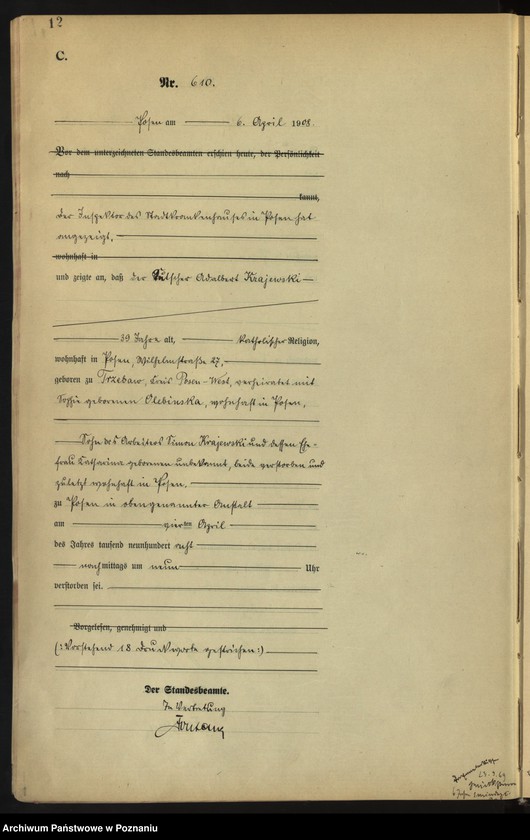 12
C.
Nr. 610.
Posen am 6. April 1908.
Vor dem unterzeichneten Standesbeamten erschien heute, der Persönlichkeit
nach
kannt,
der Inspektor des Stadtkrankenhauses in Posen hat
angezeigt,
wohnhaft in
und zeigte an, daß der Kutscher Adalbert Krajewski
39 Jahre alt, katholischer Religion,
wohnhaft in Posen, Wilhelmstraße 27,
geboren zu Trzebaw, Kreis Posen-West, verheiratet mit
Sophie geborenen Olebinska, wohnhaft in Posen,
Sohn des Arbeiters Simon Krajewski und dessen Ehe-
frau Katharina geborenen unbekannt, beide verstorben und
zuletzt wohnhaft in Posen,
zu Posen in obengenannter Anstalt
am vierten April
des Jahres tausend neunhundert acht
nachmittags um neun Uhr
verstorben sei.
Vorgelesen, genehmigt und
(:Vorstehend 18 Druckworte gestrichen:)
Der Standesbeamte.
In Vertretung
Archiwum Państwowe w Poznaniu